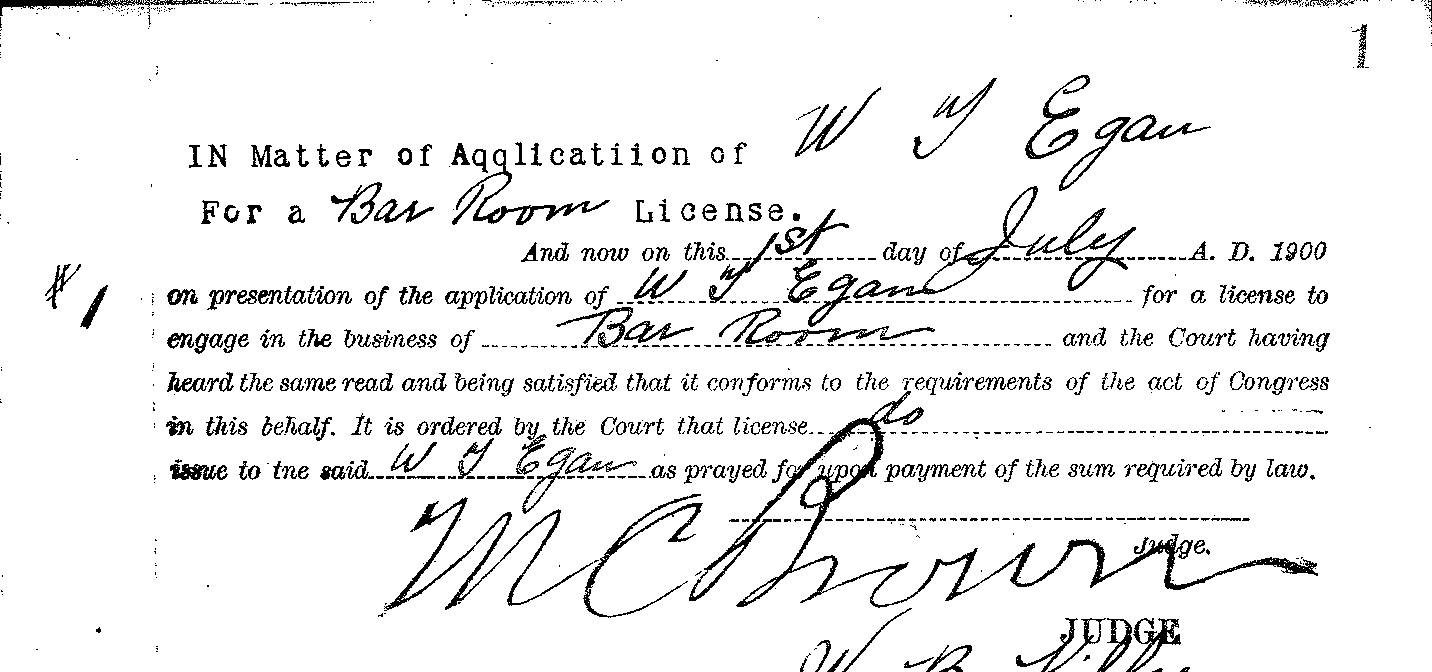 1
IN Matter of Aqqlicatiion of W T Egan
For a Bar Room License.
And now on this 1st day of July A. D. 1900
# 1
on presentation of the application of W T Egan for a license to
engage in the business of Bar Room and the Court having
heard the same read and being satisfied that it conforms to the requirements of the act of Congress
in this behalf. It is ordered by the Court that license do
issue to tne said W T Egan as prayed for upon payment of the sum required by law.
M C Brown
Judge.
JUDGE
W B